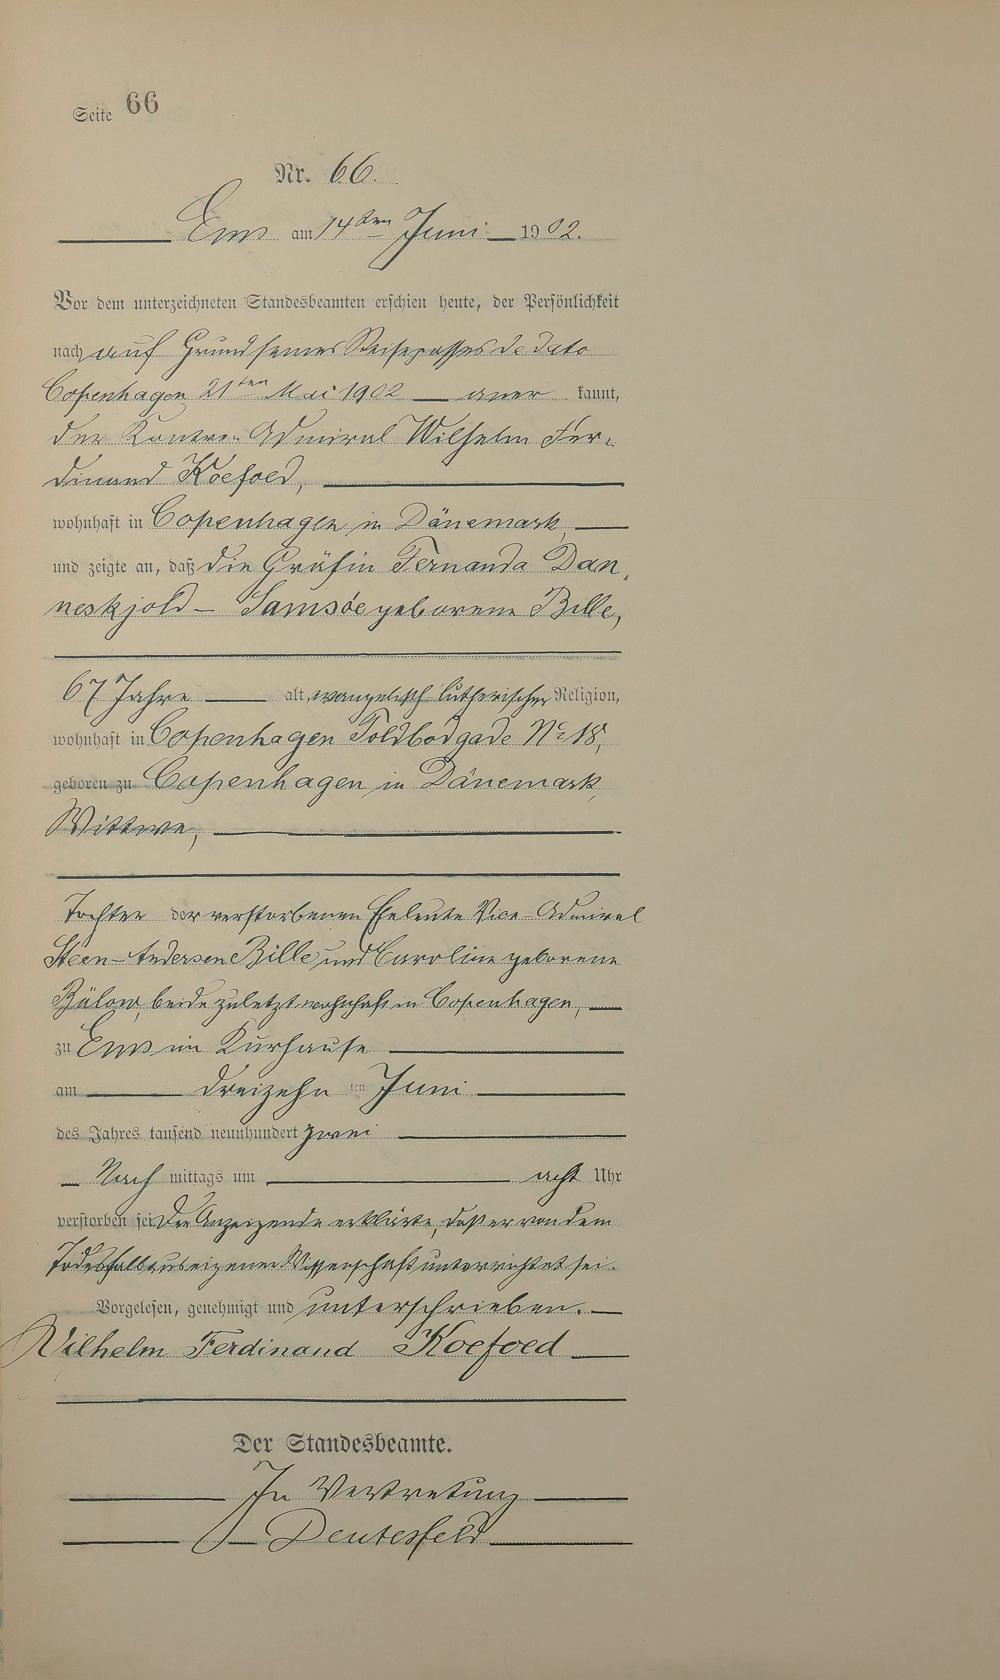 Seite 66
Nr. 66.
Ems am 14ten Juni 1902.
Vor dem unterzeichneten Standesbeamten erschien heute, der Persönlichkeit
nach auf Grund seines Reisepasses de dato
Copenhagen 21ten Mai 1902 — aner kannt,
der Kontre-Admiral Wilhelm Fer-
dinand Koefoed,
wohnhaft in Copenhagen in Dänemark
und zeigte an, daß die Gräfin Fernanda Dan-
neskjold - Samsöe geborene Bille,
67 Jahre alt, evangelisch lutherischer Religion,
wohnhaft in Copenhagen Toldbodgade No 18,
geboren zu Copenhagen in Dänemark,
Wittwe,
Tochter der verstorbenen Eheleute Vice-Admiral
Steen-Andersen Bille und Caroline geborene
Bülow, beide zuletzt wohnhaft in Copenhagen,
zu Ems im Kurhause
am dreizehn ten Juni
des Jahres tausend neunhundert zwei
Nach mittags um acht Uhr
verstorben sei. Der Anzeigende erklärte, daß er von dem
Todesfall aus eigener Wissenschaft unterrichtet sei.
Vorgelesen, genehmigt und unterschrieben.
Wilhelm Ferdinand Koefoed
Der Standesbeamte.
In Vertretung
Deutesfeld